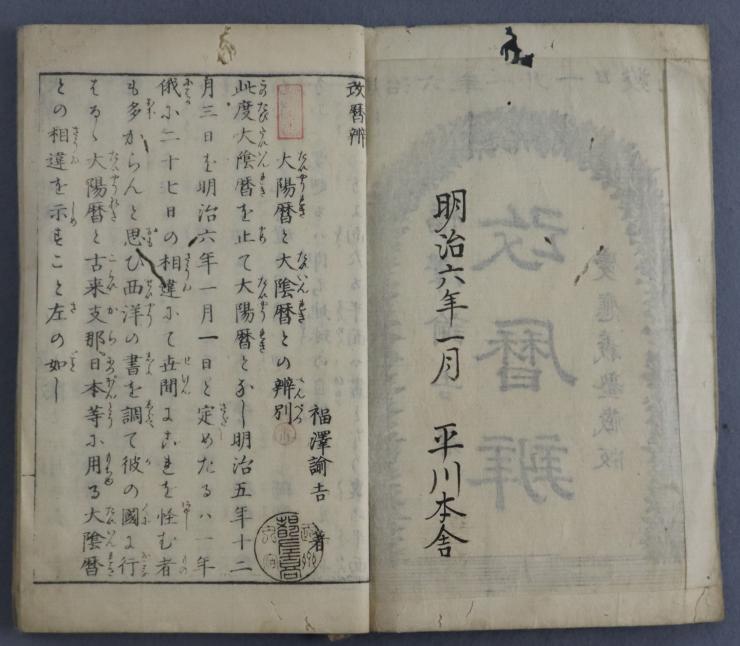 明治六年一月 平川本舎
改暦辨
福澤諭吉 著
大陽暦と大陰暦との辨別
此度大陰暦を止て大陽暦となし明治五年十二
月三日を明治六年一月一日と定めたるハ一年
俄に二十七日の相違にて世間にこれを怪む者
も多からんと思ひ西洋の書を調て彼の國に行
はるゝ大陽暦と古来支那日本等に用る大陰暦
との相違を示すこと左の如し